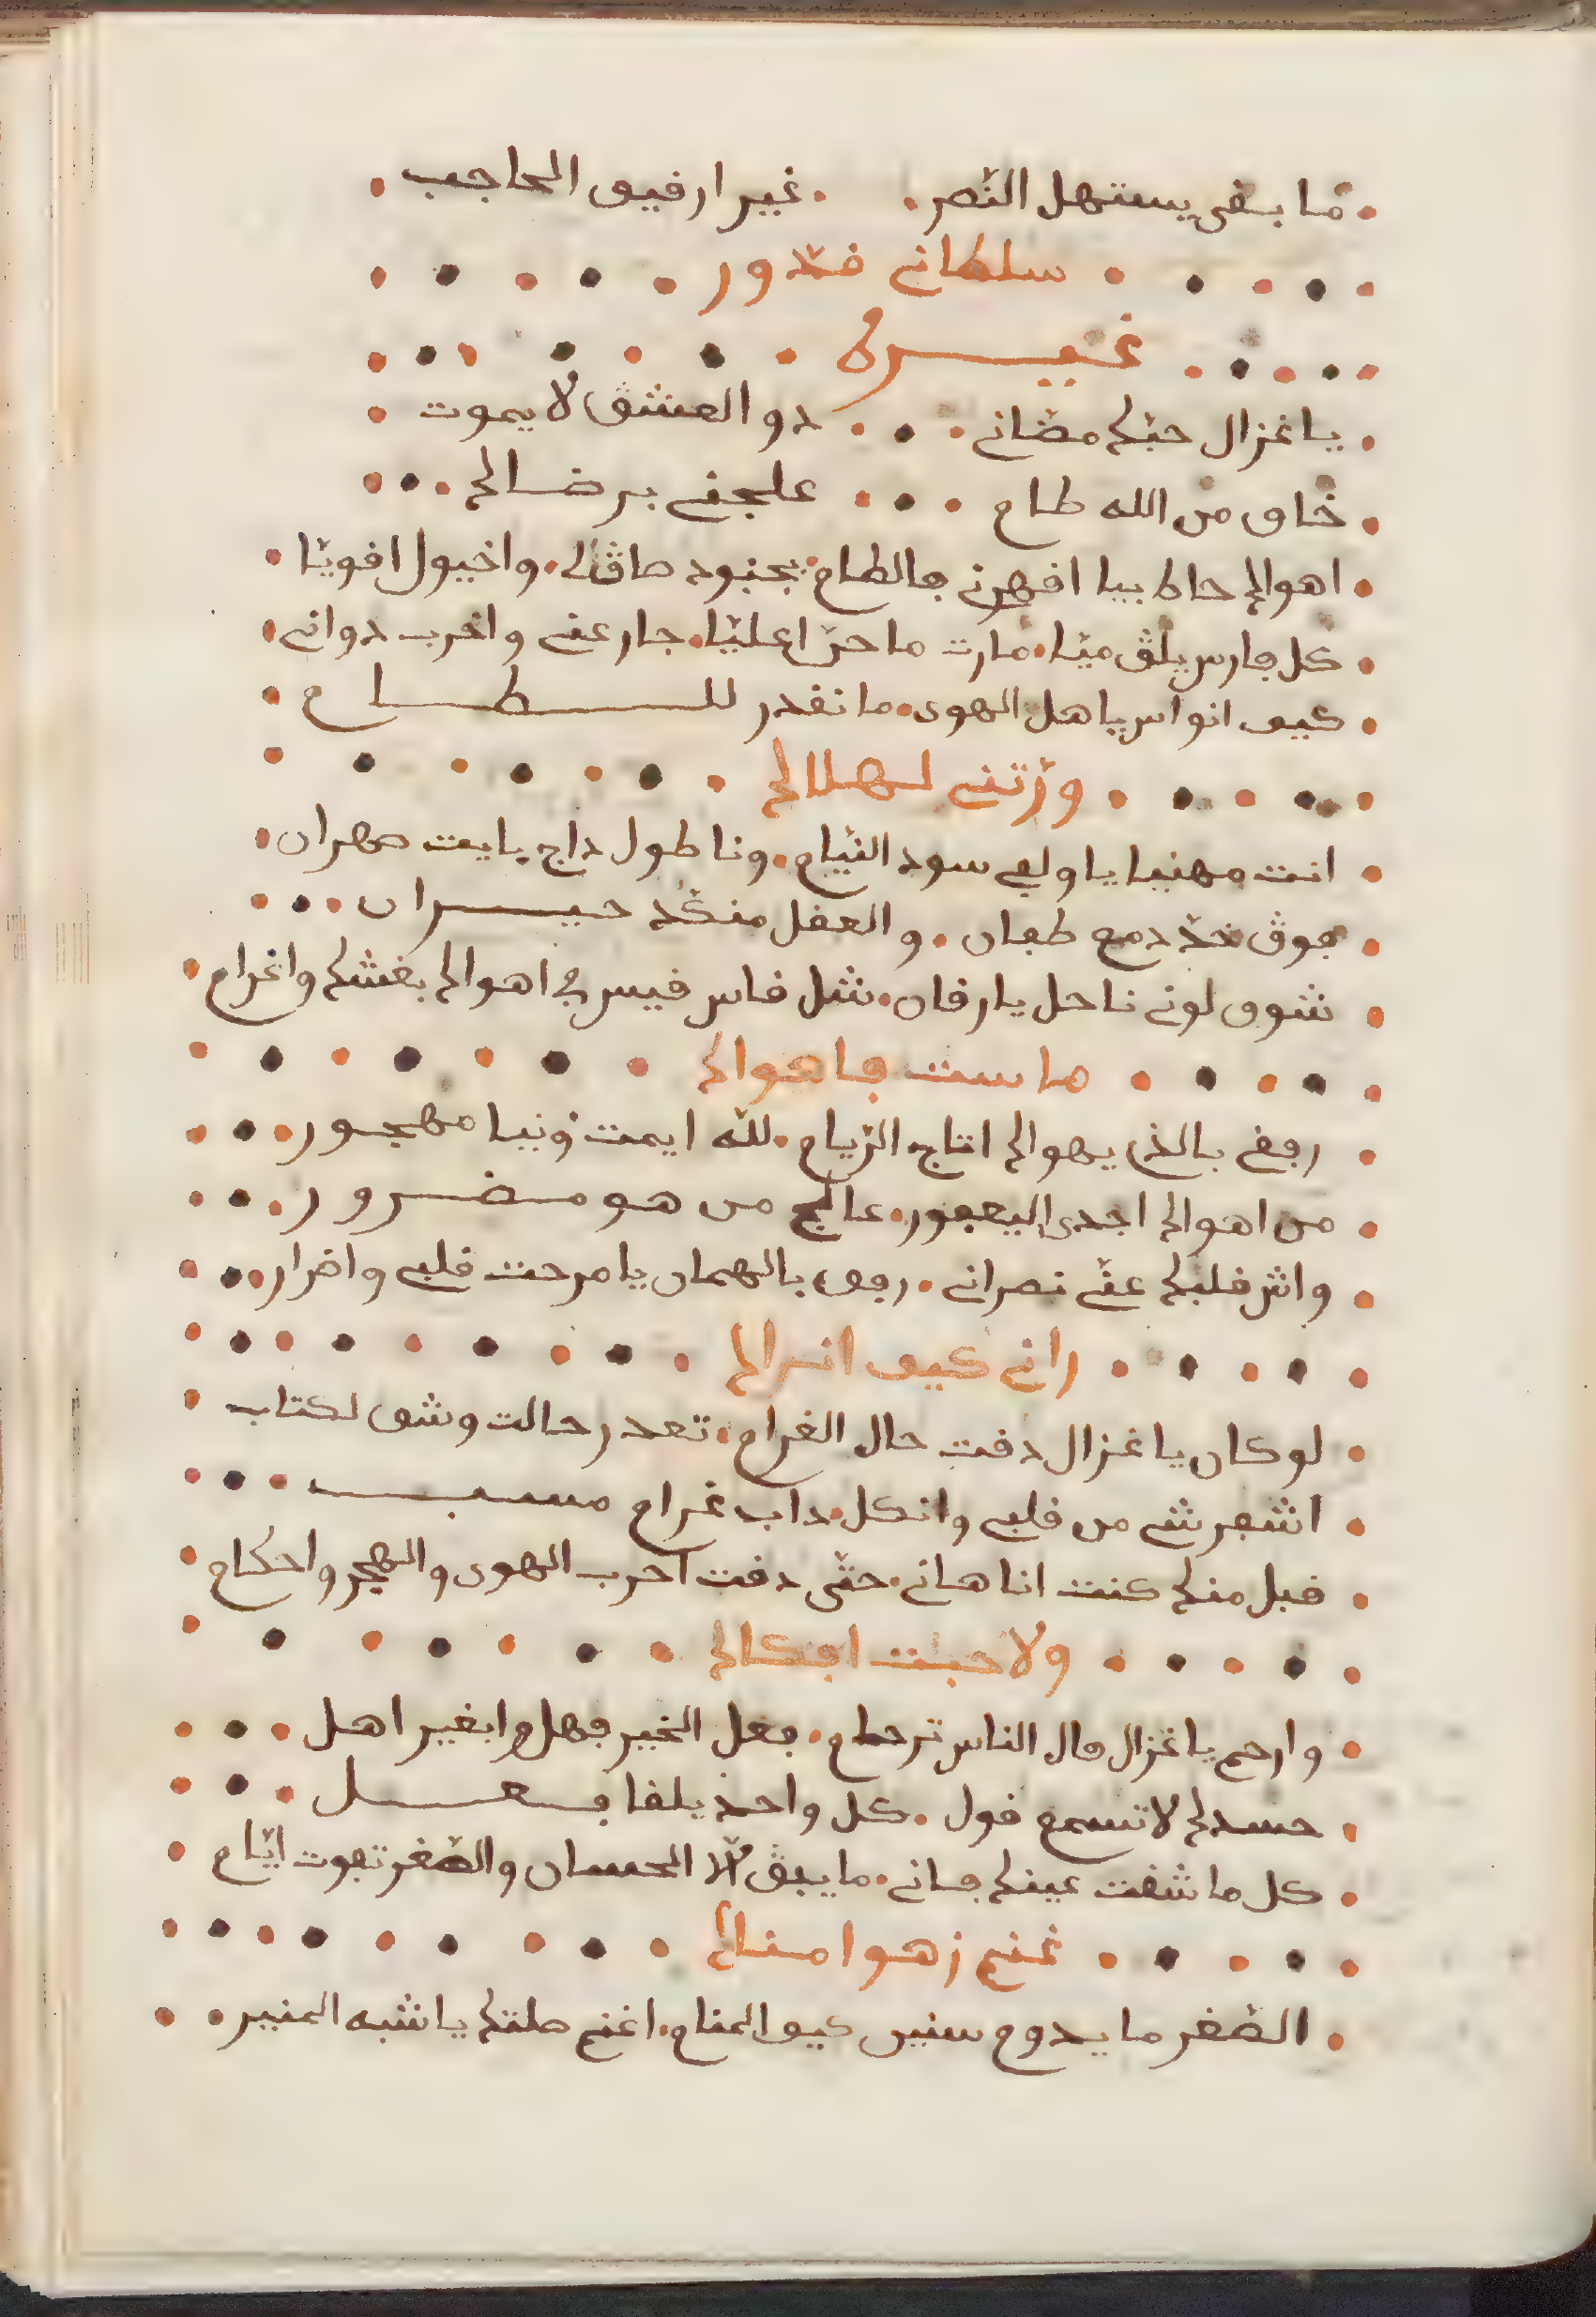 ما بقى يستهل النّصر . غير ارفيق الحاجب
سلطاني قدّور
غيره
يا غزال حبّك مضاني . دو العشق لا يموت
خاف من الله طام . علجني برضاك
اهواك حاط بيا اقهرني فالطام . بجنود صافك . واخيول اقويّا
كل فارس يلق ميّا . مارت ما حنّ اعليّا . جار عني واخرب دواني
كيف انواس ياهل الهوى . ما نقدر للطام
ورّتني لهلاك
انت مهنيا يا ولفي سود النيام . ونا طول داج بايت سهران
فوق خدّ دمع طفان . والعقل منكد حيران
شوف لوني ناحل يارقان . شل قاس قيس في اهواك بغشك واغرام
ماست فاهواك
رفق بالذي يهواك اتاج الريام . لله ايمت ونيا مهجور
من اهواك اجدى اليعفور . عالج من هو مضرور
واش قلبك عني نصراني . رفق بالهمان يا مرحت قلبي واضرار
راني كيف انراك
لو كان يا غزال دقت حال الغرام . تعدر حالت وشق لكتاب
اشفرشي من قلبي وانكل . داب غرام مسبب
قبل منك كنت انا هاني . حتى دقت احرب الهوى والهجر واحكام
ولا حبت افكاك
وارحم يا غزال قال الناس ترحام . فعل الخير فهل وابغير اهل
حسدك لا تسمع قول . كل واحد يلقا فعل
كل ما شفت عينك فاني . ما يبق الا الحسان والصّغر تفوت ايّام
غنم زهو امناك
الصّغر ما يدوم سنين كيف المنام . اغنم صلتك يا شبه المنير